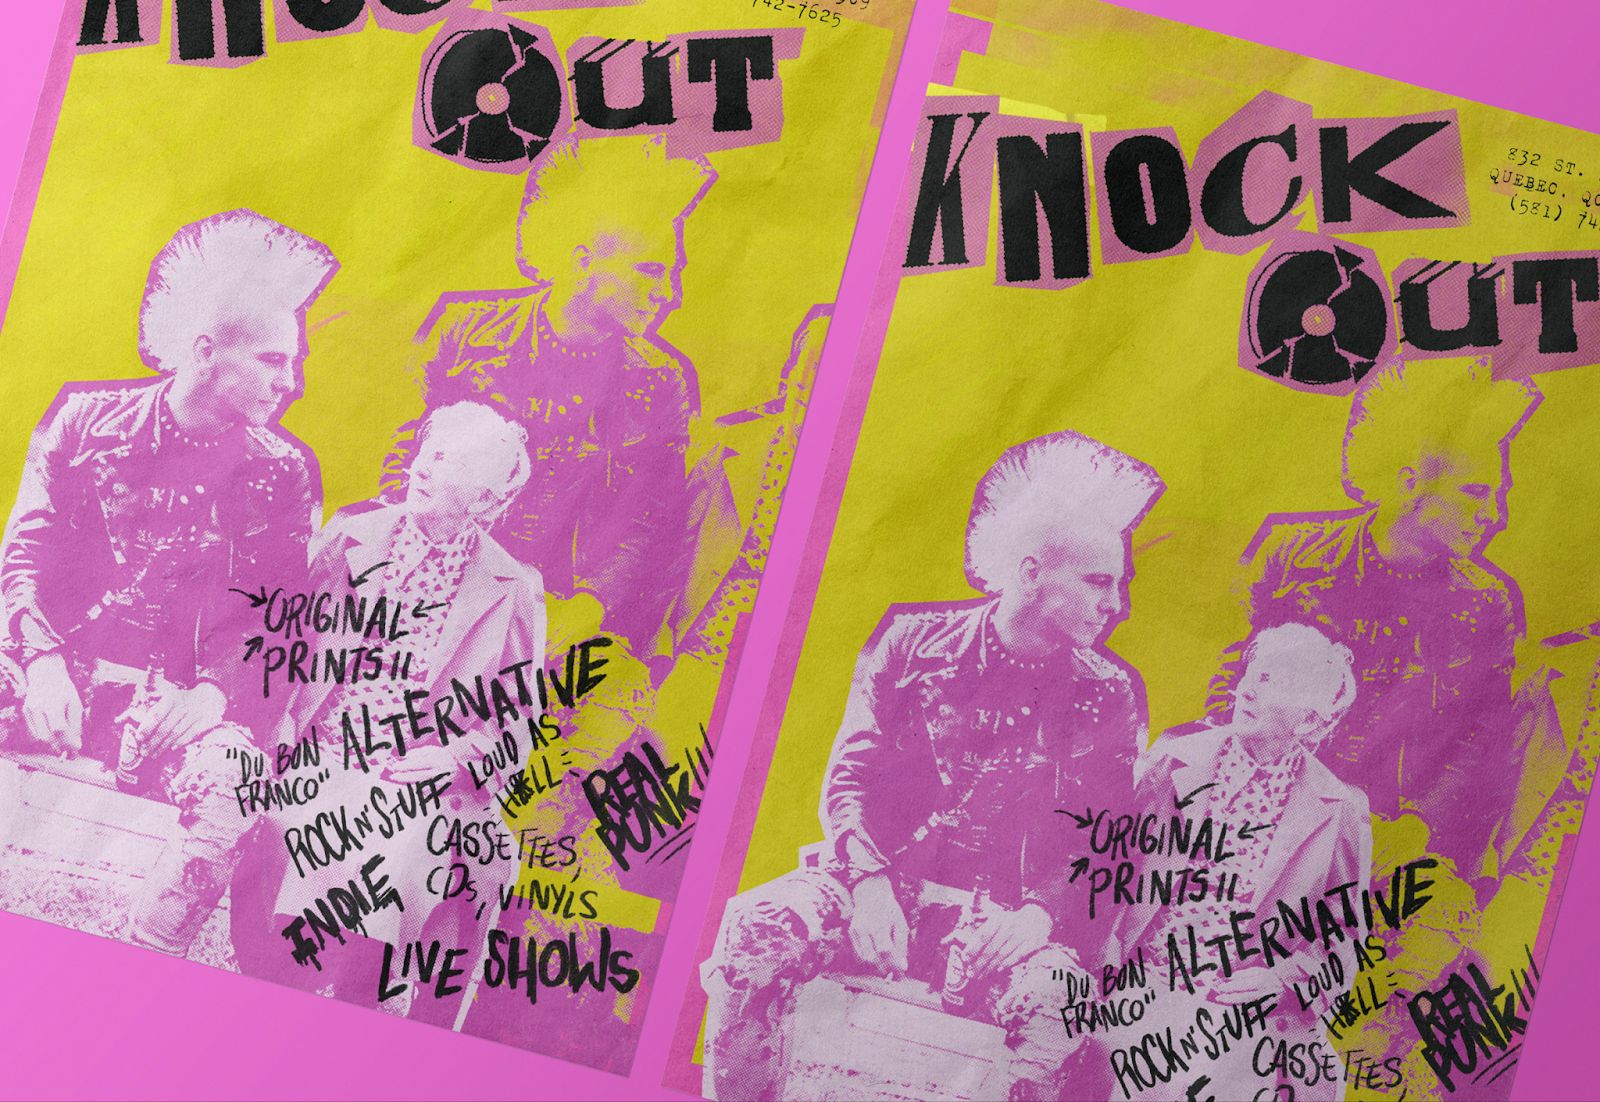 KNOCK
742-7625
OUT
ORIGINAL
PRINTS!!
ALTERNATIVE
"DU BON
FRANCO"
ROCK N' STUFF
LOUD AS
H*LL
REAL
PUNK!!!
CASSETTES,
CDs, VINYLS
INDIE
LIVE SHOWS
KNOCK
832 ST.
QUEBEC, QC
(581) 74
OUT
ORIGINAL
PRINTS!!
ALTERNATIVE
"DU BON
FRANCO"
ROCK N' STUFF
LOUD AS
H*LL
REAL
PUNK!!!
CASSETTES,